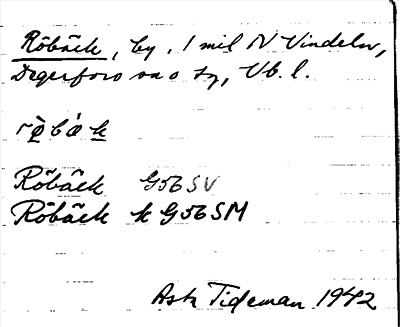 Röbäck, by, 1 mil N Vindeln,
Degerfors sn o tg, Vb. l.
Röbäck G56 SV
Röbäck k G56 SM
Asta Tideman 1942